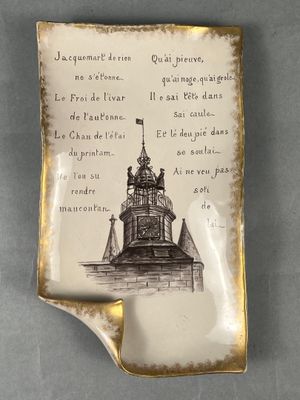 Jacquemart de rien
ne s'étonne.
Le Froi de l'ivar
de l'autonne
Le Chau de l'étai
du printam.
Ne l'on su
rendre
maucontan.
Qu'ai pleuve,
qu'ai noge, qu'ai grole
Il e sai tête dans
sai caule
Et lé deu pié dans
se soulai.
Ai ne veu pas
soti
de
lai.